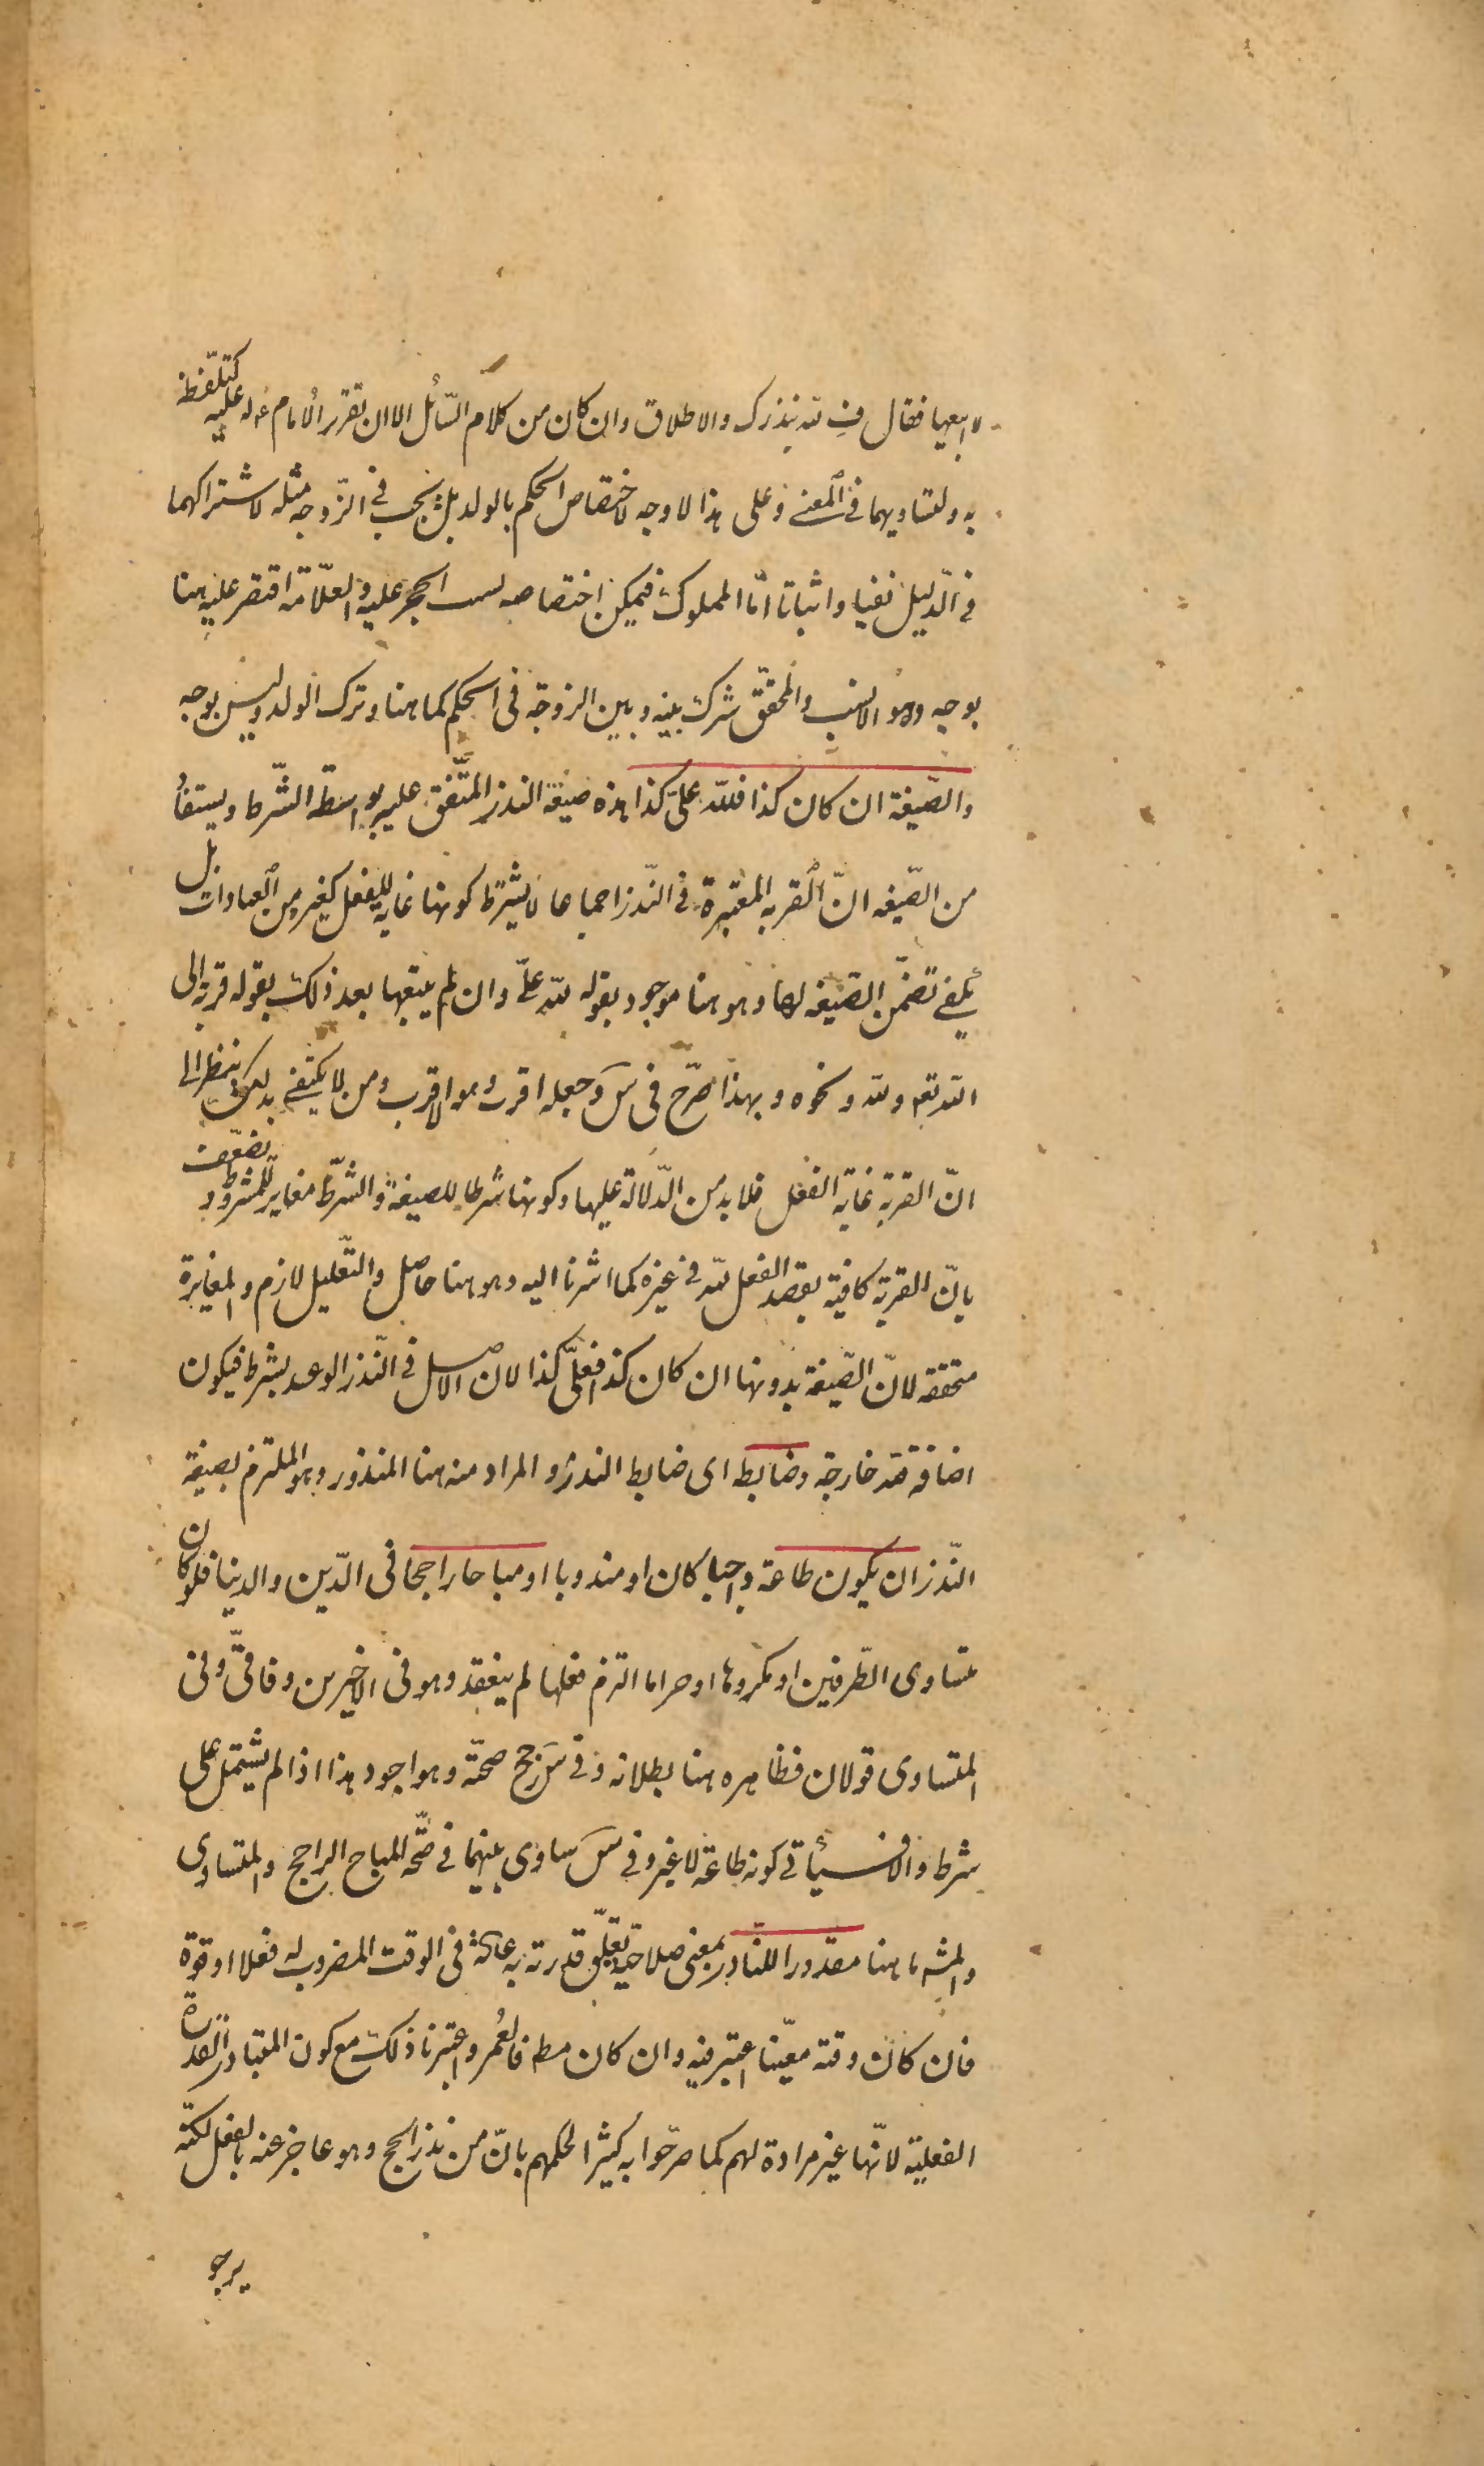 لا ابيعها فقال فِ لله بنذرك والاطلاق وان كان من كلام السّائل الا ان تقرر الامام ع له عليه كتلفّظه
به ولتساويهما في المعنى وعلى هذا لا وجه لاختصاص الحكم بالولد بل يجب في الزّوجة مثله لاشتراكهما
في الدّليل نفيا واثباتا امّا المملوك فيمكن اختصاصه لسبب الحجر عليه والعلّامة اقتصر عليه هنا
بوجه وهو الانسب والمحقّق شرك بينه وبين الزوجة في الحكم كما هنا وترك الولد وليس بوجه
والصّيغة ان كان كذا فللّه علىّ كذا هذه صيغة النذر المتّفق عليه بواسطة الشّرط ويستفاد
من الصّيغه انّ القربه المعتبرة في النّذر اجماعا لا يشترط كونها غاية للفعل كغيره من العبادات بل
يكفي تضمّن الصّيغه لها وهو هنا موجود بقوله لله علىّ وان لم يتبعها بعد ذلك بقوله قربة الى
الله تعه او لله ونحوه وبهذا صرّح في س وجعله اقرب وهو الاقرب ومن لا يكتفى بذلك ينظر الى
انّ القربة غاية الفعل فلا بد من الدّلالة عليها وكونها شرطا للصيغة والشّرط مغاير للمشروط ويضعّف
بانّ القربة كافية بقصد الفعل لله في غيره كما اشرنا اليه وهو هنا حاصل والتّعليل لازم والمغايرة
متحققه لانّ الصّيغة بدونها ان كان كذا فعلىّ كذا لان الاصل في النّذر الوعد بشرط فيكون
اضافة لله خارجة وضابط اى ضابط النذر والمراد منه هنا المنذور وهو الملتزم بصيغة
النّذر ان يكون طاعة واجبا كان او مندوبا او مباحا راجحا في الدّين والدنيا فلو كان
متساوى الطّرفين او مكروها او حراما التزم فعلها لم ينعقد وهو في الاخيرين وفاقىّ وفي
المتساوى قولان فظاهره هنا بطلانه وفي س رجح صحّته وهو اجود هذا اذا لم يشتمل على
شرط والا فسيأتي كونه طاعة لا غير وفي س ساوى بينهما في صحّة المباح الراجح والمتساوى
والمشه هنا مقدورا للنّاذر بمعنى صلاحيّة تعلّق قدرته به عادة في الوقت المضروب له فعلا او قوة
فان كان وقته معيّنا اعتبر فيه وان كان مط فالعُمر واعتبرنا ذلك مع كون المتبادر القدرة
الفعلية لانّها غير مرادة لهم كما صرّحوا به كثيرا لحكمهم بانّ من نذر الحج وهو عاجز عنه بالفعل لكنّه
يرجو